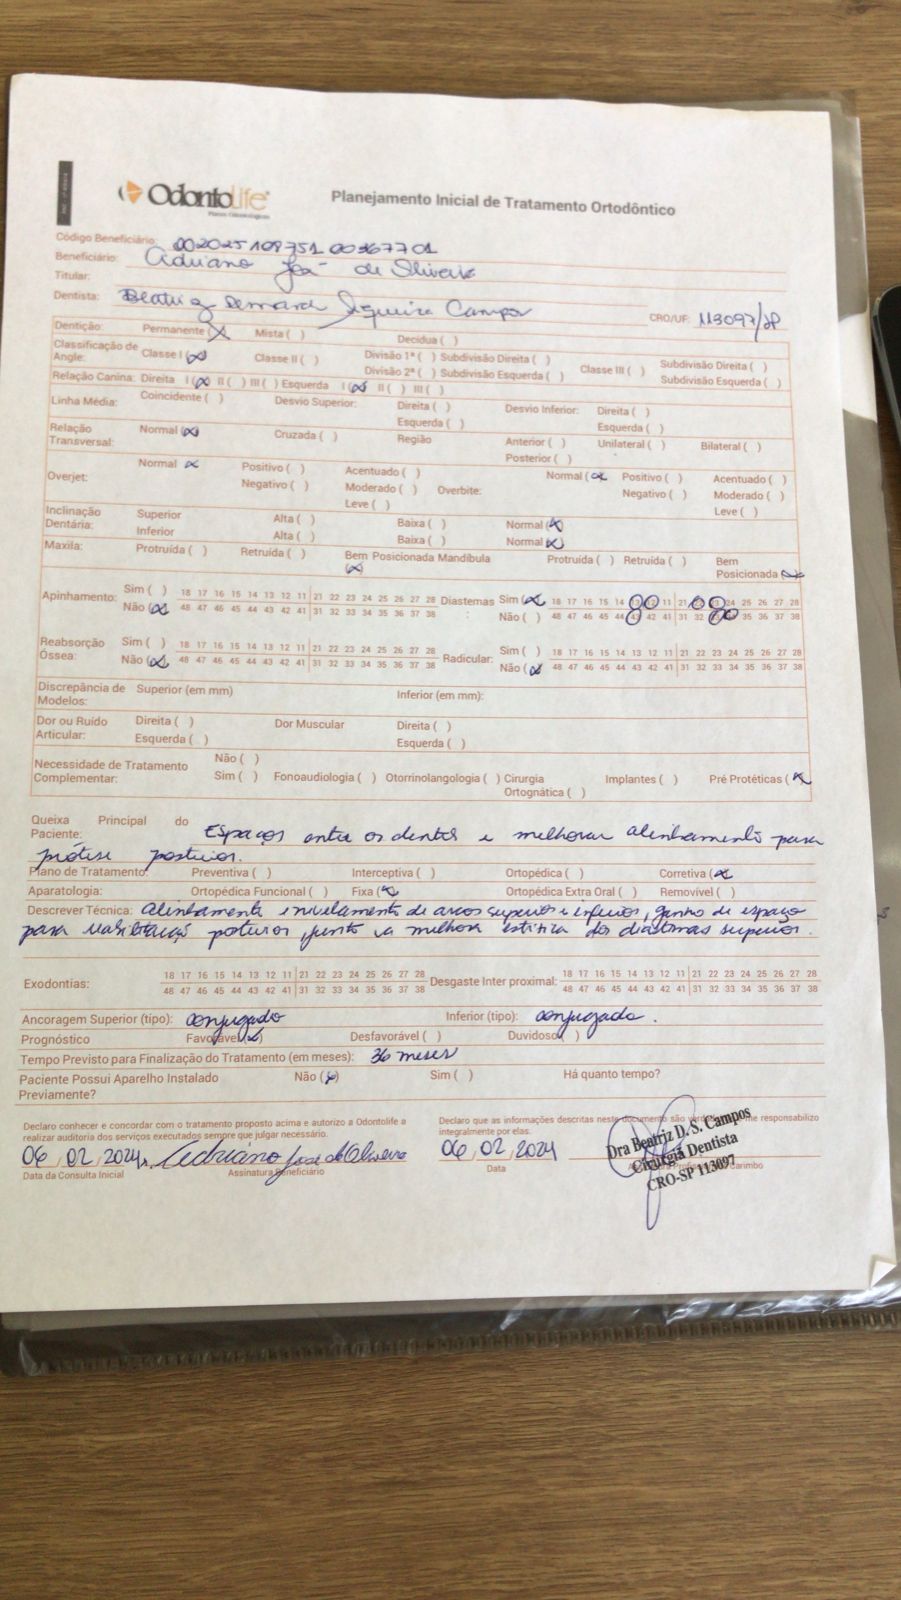 OdontoLife
Planos Odontológicos
Planejamento Inicial de Tratamento Ortodôntico
Código Beneficiário: 00202510975100367701
Beneficiário: Adriano José de Oliveira
Titular:
Dentista: Beatriz Siqueira Campos CRO/UF: 113097/SP
Dentição: Permanente (X) Mista ( ) Decídua ( )
Classificação de Angle: Classe I (X) Classe II ( ) Divisão 1ª ( ) Subdivisão Direita ( ) Classe III ( ) Subdivisão Direita ( )
Divisão 2ª ( ) Subdivisão Esquerda ( ) Subdivisão Esquerda ( )
Relação Canina: Direita I (X) II ( ) III ( ) Esquerda I (X) II ( ) III ( )
Linha Média: Coincidente ( ) Desvio Superior: Direita ( ) Desvio Inferior: Direita ( )
Esquerda ( ) Esquerda ( )
Relação Transversal: Normal (X) Cruzada ( ) Região Anterior ( ) Unilateral ( ) Bilateral ( )
Posterior ( )
Overjet: Normal X Positivo ( ) Acentuado ( ) Overbite: Normal (X Positivo ( ) Acentuado ( )
Negativo ( ) Moderado ( ) Negativo ( ) Moderado ( )
Leve ( ) Leve ( )
Inclinação Dentária: Superior Alta ( ) Baixa ( ) Normal (X)
Inferior Alta ( ) Baixa ( ) Normal (X)
Maxila: Protruída ( ) Retruída ( ) Bem Posicionada (X) Mandíbula Protruída ( ) Retruída ( ) Bem Posicionada (X)
Apinhamento: Sim ( ) 18 17 16 15 14 13 12 11 21 22 23 24 25 26 27 28 Diastemas Sim (X) 18 17 16 15 14 13 12 11 21 22 23 24 25 26 27 28
Não (X) 48 47 46 45 44 43 42 41 31 32 33 34 35 36 37 38 Não ( ) 48 47 46 45 44 43 42 41 31 32 33 34 35 36 37 38
Reabsorção Óssea: Sim ( ) 18 17 16 15 14 13 12 11 21 22 23 24 25 26 27 28 Radicular: Sim ( ) 18 17 16 15 14 13 12 11 21 22 23 24 25 26 27 28
Não (X) 48 47 46 45 44 43 42 41 31 32 33 34 35 36 37 38 Não (X) 48 47 46 45 44 43 42 41 31 32 33 34 35 36 37 38
Discrepância de Modelos: Superior (em mm) Inferior (em mm):
Dor ou Ruído Articular: Direita ( ) Dor Muscular Direita ( )
Esquerda ( ) Esquerda ( )
Necessidade de Tratamento Complementar: Não ( )
Sim ( ) Fonoaudiologia ( ) Otorrinolangologia ( ) Cirurgia Ortognática ( ) Implantes ( ) Pré Protéticas (X
Queixa Principal do Paciente: Espaços entre os dentes e melhorar alinhamento para
prótese posterior.
Plano de Tratamento: Preventiva ( ) Interceptiva ( ) Ortopédica ( ) Corretiva (X)
Aparatologia: Ortopédica Funcional ( ) Fixa (X) Ortopédica Extra Oral ( ) Removível ( )
Descrever Técnica: Alinhamento e nivelamento de arcos superior e inferior, ganho de espaço
para reabilitação posterior, junto a melhora estética dos diastemas superior.
Exodontias: 18 17 16 15 14 13 12 11 21 22 23 24 25 26 27 28 Desgaste Inter proximal: 18 17 16 15 14 13 12 11 21 22 23 24 25 26 27 28
48 47 46 45 44 43 42 41 31 32 33 34 35 36 37 38 48 47 46 45 44 43 42 41 31 32 33 34 35 36 37 38
Ancoragem Superior (tipo): conjugado Inferior (tipo): conjugado.
Prognóstico Favorável (X) Desfavorável ( ) Duvidoso ( )
Tempo Previsto para Finalização do Tratamento (em meses): 36 meses
Paciente Possui Aparelho Instalado Previamente? Não (X) Sim ( ) Há quanto tempo?
Declaro conhecer e concordar com o tratamento proposto acima e autorizo a Odontolife a
realizar auditoria dos serviços executados sempre que julgar necessário.
Declaro que as informações descritas neste documento são verdadeiras e me responsabilizo
integralmente por elas.
06/02/2024 Adriano José de Oliveira 06/02/2024
Data da Consulta Inicial Assinatura Beneficiário Data Carimbo
Dra Beatriz D. S. Campos
Cirurgiã Dentista
CRO-SP 113097